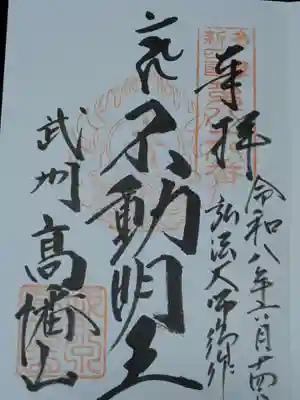 奉拝
令和八年六月十四日
弘法大師御作
不動明王
武州
高幡山